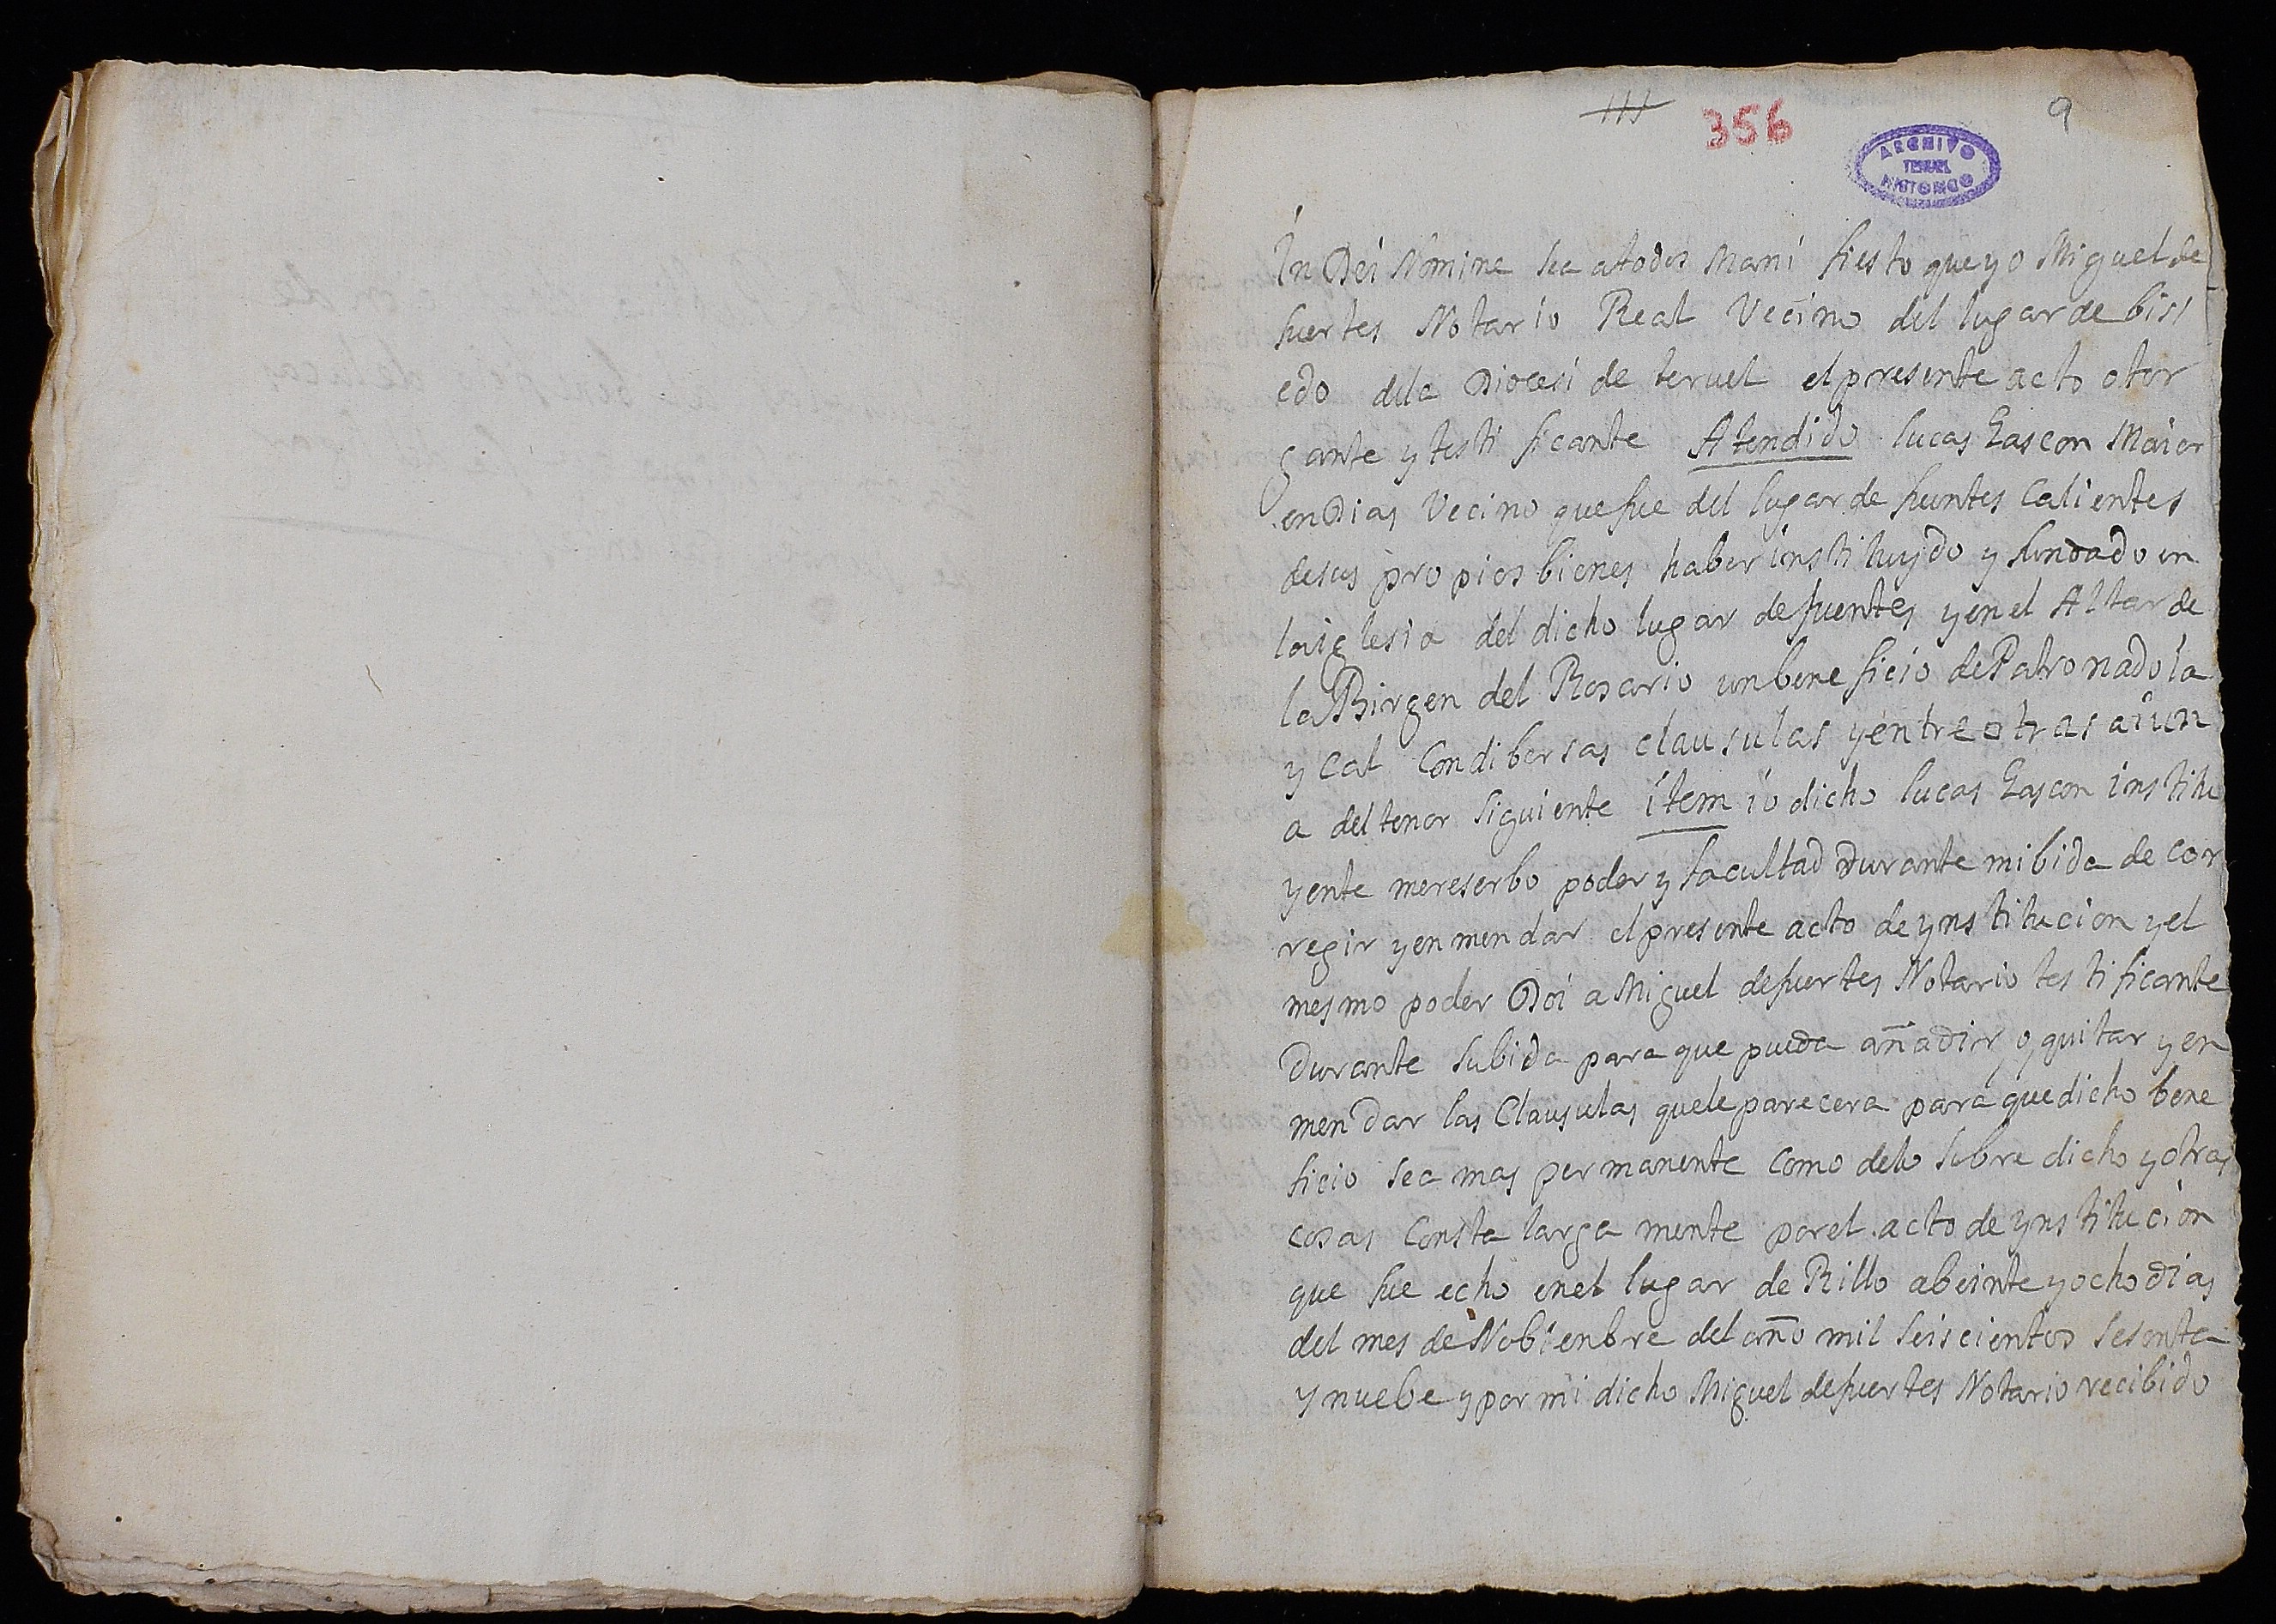 111
356
9
ARCHIVO
TERUEL
HISTORICO
In Dei Nomine sea atodos Mani fiesto que yo Miguel de
fuertes Notario Real Vecino del lugar de bisi
edo dela Diocesi de teruel el presente acto otor
gante y testi ficante Atendido lucas Gascon Maior
en Dias Vecino que fue del lugar de fuentes Calientes
desus propios bienes haber instituydo y fundado en
la iglesia del dicho lugar de fuentes y en el Altar de
la Birgen del Rosario un bene ficio de Patronado la
y cal Con dibersas clausulas y entre otras ai un
a del tenor siguiente item io dicho lucas Gascon institu
yente me reserbo poder y facultad Durante mi bida de cor
regir y en mendar el presente acto de ynstitucion y el
mesmo poder Doi a Miguel de fuertes Notario testificante
Durante su bida para que pueda añadir y quitar y en
men Dar las Clausulas que le parecera para que dicho bene
ficio sea mas permanente como delo sobre dicho y otras
cosas Consta larga mente por el acto de ynstitucion
que fue echo en el lugar de Rillo a beinte y ocho dias
del mes de Nobienbre del año mil seiscientos sesenta
y nuebe y por mi dicho Miguel de fuertes Notario recibido